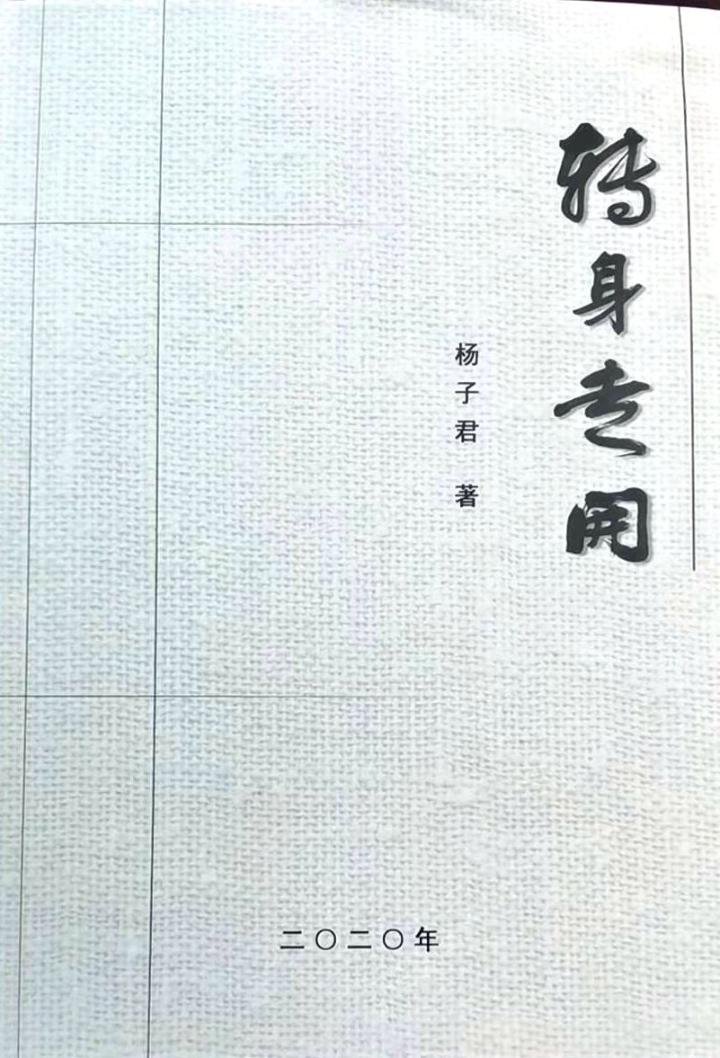 转身走開
杨子君 著
二〇二〇年